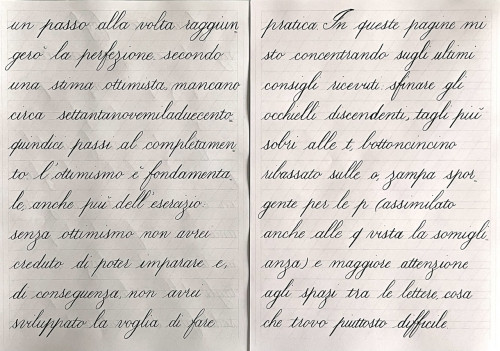 un passo alla volta raggiun
gerò la perfezione secondo
una stima ottimista, mancano
circa settantanovemiladuecento
quindici passi al completamen
to l'ottimismo è fondamenta
le, anche più dell'esercizio:
senza ottimismo non avrei
creduto di poter imparare e,
di conseguenza, non avrei
sviluppato la voglia di fare
pratica. In queste pagine mi
sto concentrando sugli ultimi
consigli ricevuti: sfinare gli
occhielli discendenti, tagli più
sobri alle t, bottoncincino
ribassato sulle o, zampa spor
gente per le p (assimilato
anche alle q vista la somigli
anza) e maggiore attenzione
agli spazi tra le lettere, cosa
che trovo piuttosto difficile.